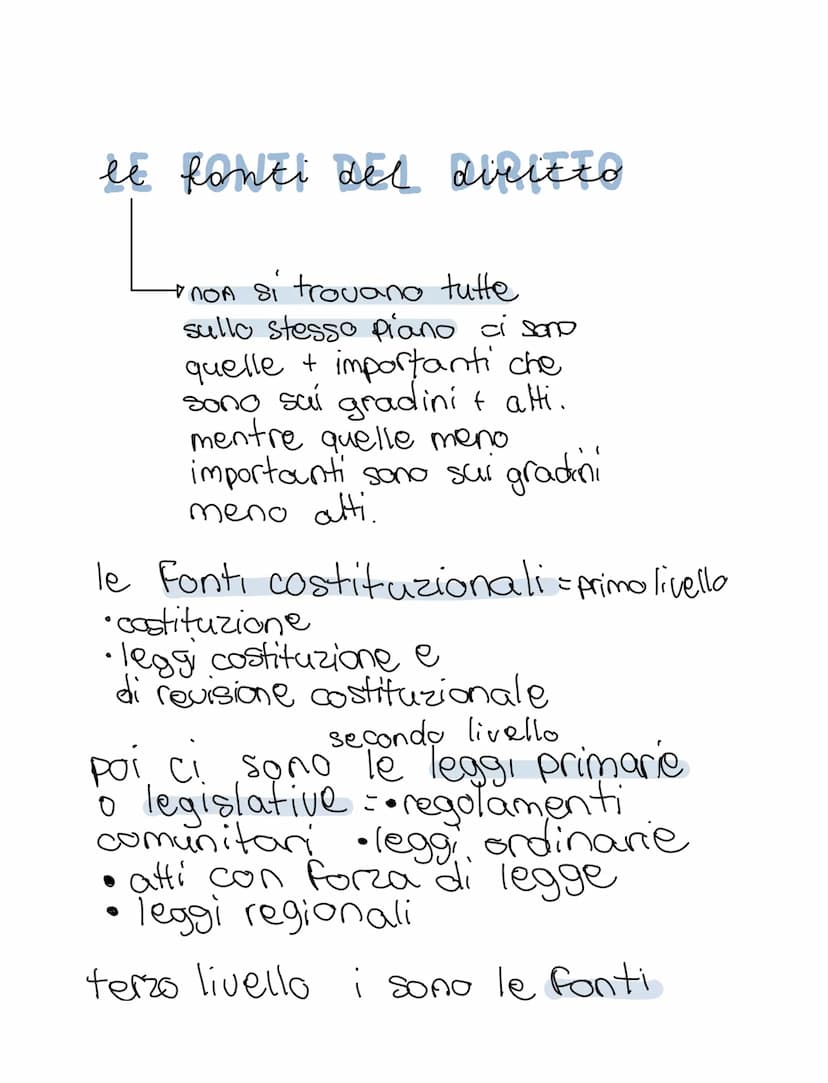 le FONTI DEL DIRITTO
non si trovano tutte
sullo stesso piano ci sono
quelle + importanti che
sono sui gradini + alti.
mentre quelle meno
importanti sono sui gradini
meno alti.
le fonti costituzionali = primo livello
• costituzione
• leggi costituzione e
di revisione costituzionale
secondo livello
poi ci sono le leggi primarie
o legislative = • regolamenti
comunitari • leggi ordinarie
• atti con forza di legge
• leggi regionali
terzo livello i sono le fonti